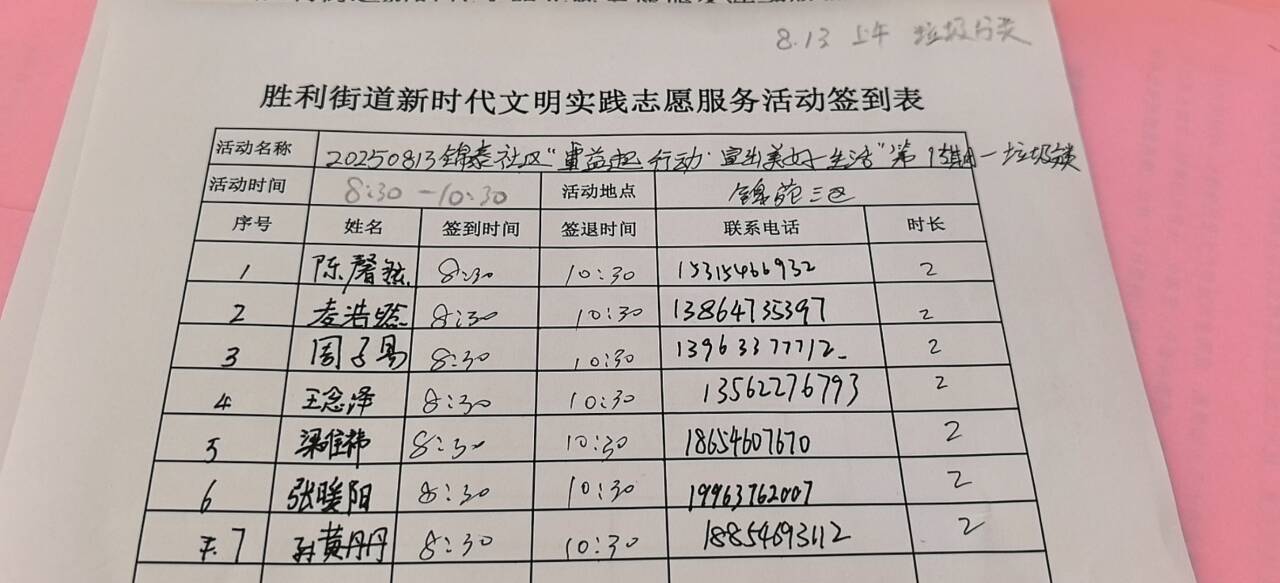 8.13 上午 垃圾分类
胜利街道新时代文明实践志愿服务活动签到表
活动名称 20250813锦泰社区“重益起行动·宜出美好生活”第13期—垃圾分类
活动时间 8:30-10:30 活动地点 锦苑三区
序号 姓名 签到时间 签退时间 联系电话 时长
1 陈馨 8:30 10:30 15315466932 2
2 麦浩 8:30 10:30 13864735397 2
3 周子 8:30 10:30 13963377712 2
4 王念泽 8:30 10:30 13562276793 2
5 梁维祎 8:30 10:30 18654607670 2
6 张暖阳 8:30 10:30 19963762007 2
7 孙黄丹丹 8:30 10:30 18854693112 2